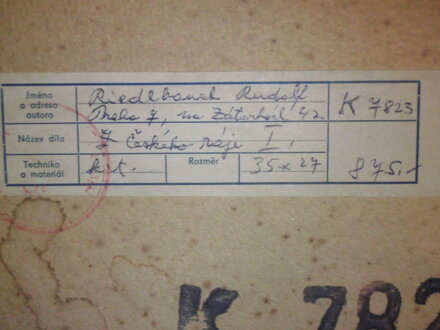 Jméno
a adresa
autora
Riedlbauch Rudolf
Praha 7, na Zátorách 42
K 7823
Název díla
Z Českého ráje I.
Technika
a materiál
k.t.
Rozměr
35 x 27
875.-
K 782